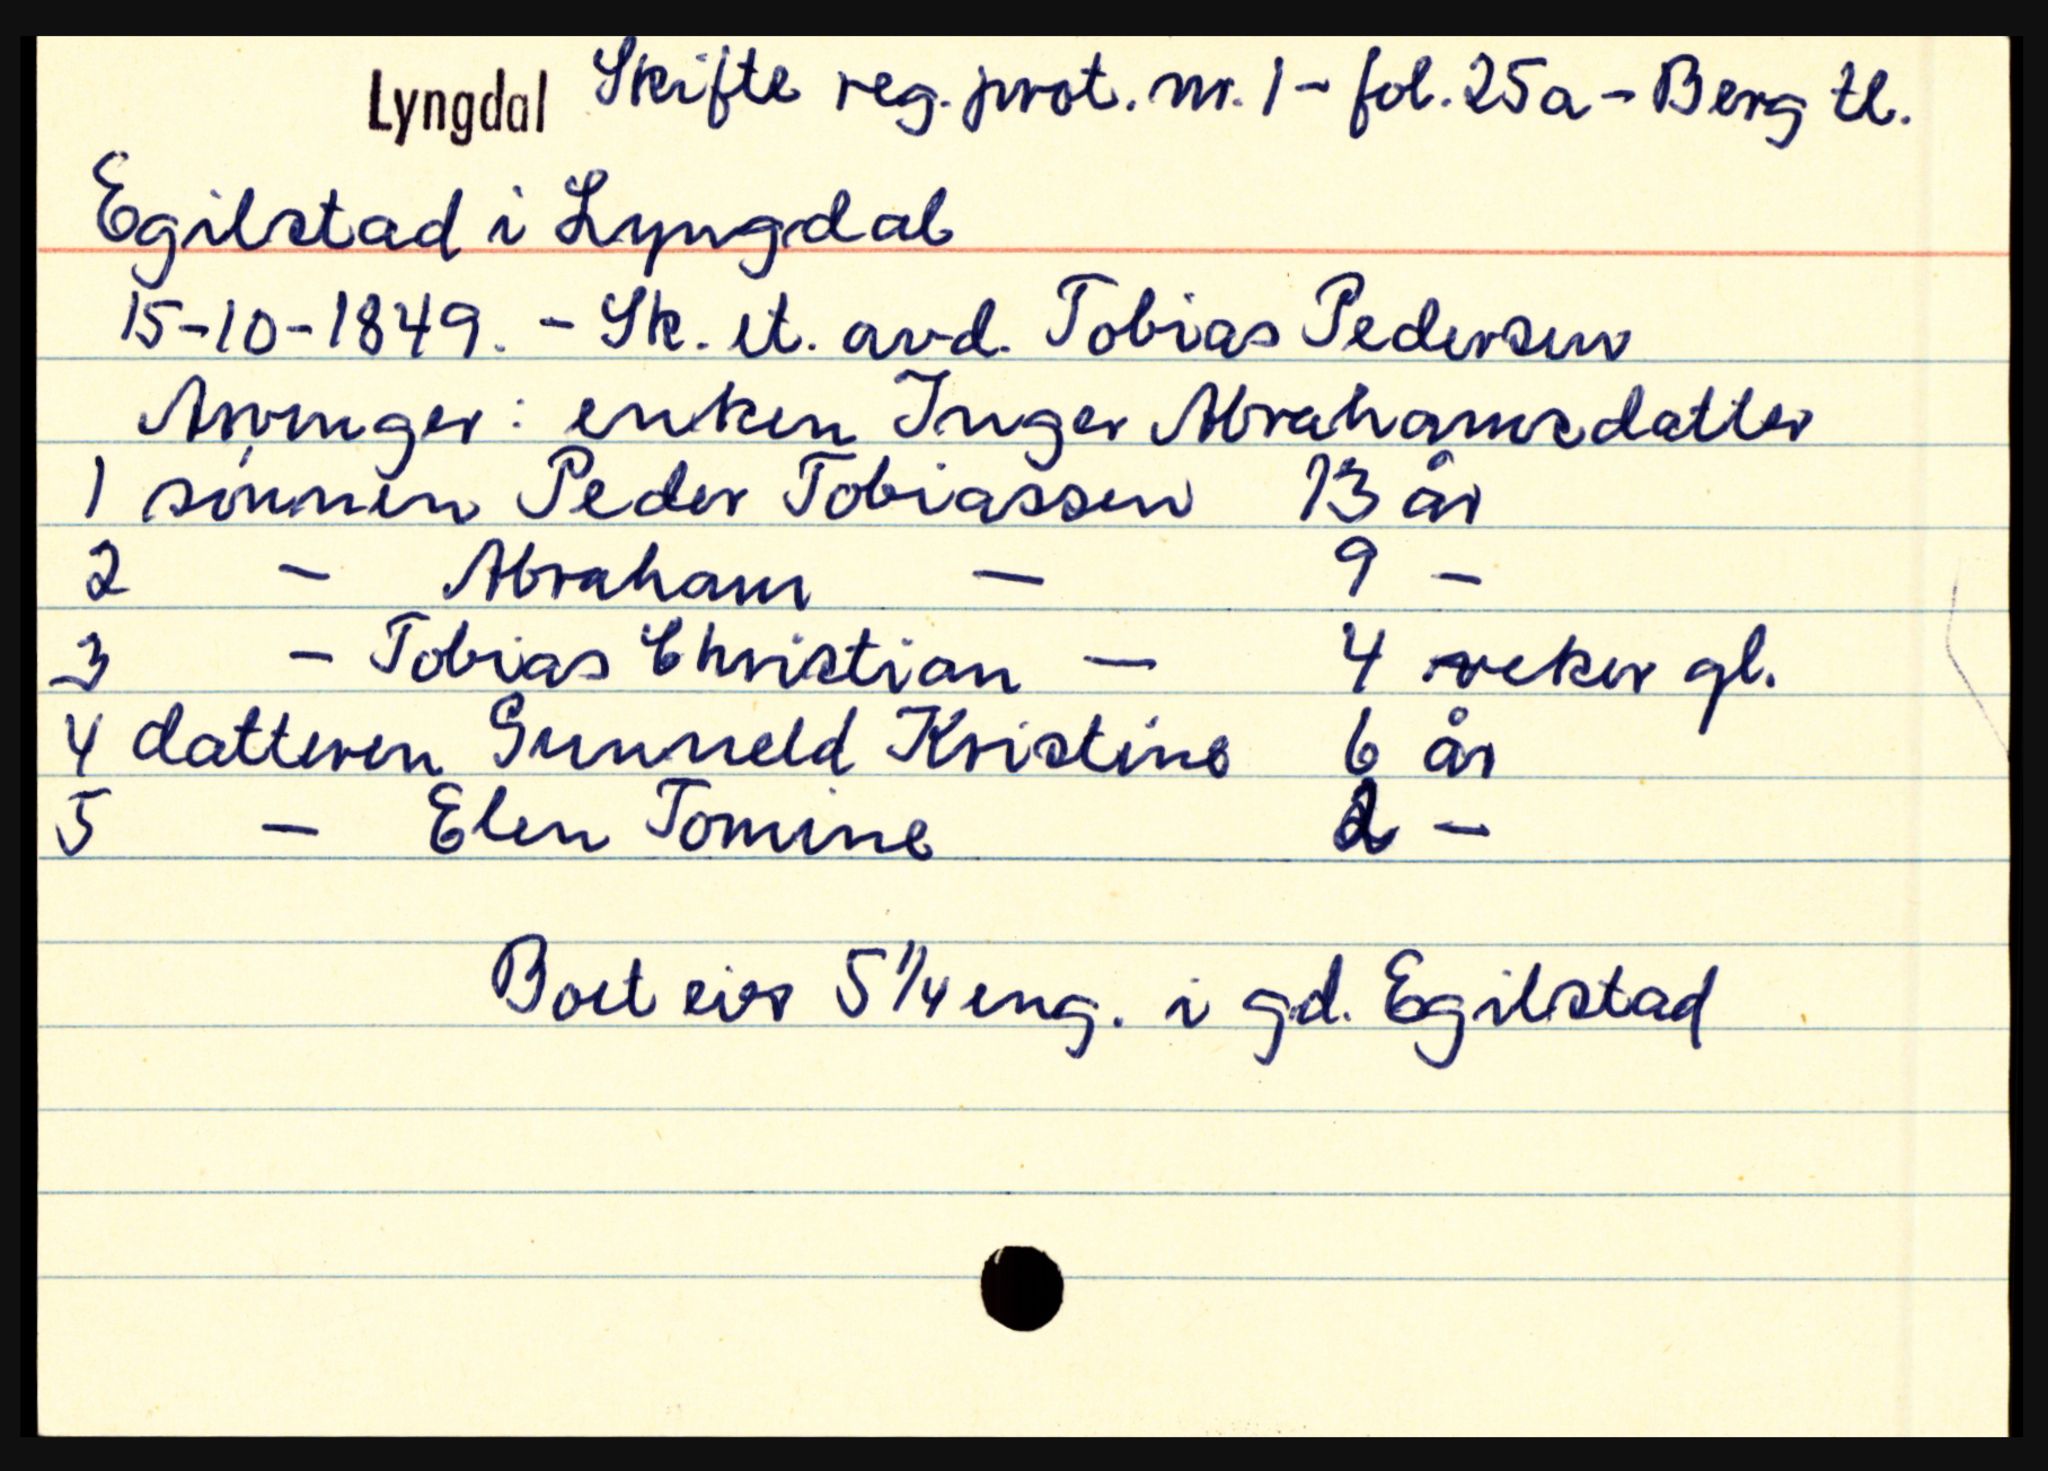 Lyngdal Skifte reg. prot. nr. 1 - fol. 25a - Berg tl.
Egilstad i Lyngdal
15-10-1849. - Sk. et. avd. Tobias Pedersen
Arvinger: enken Inger Abrahamsdatter
1 sønnen Peder Tobiassen 13 år
2 - Abraham - 9 -
3 - Tobias Christian - 4 veker gl.
4 datteren Gunneld Kristine 6 år
5 - Elen Tomine 2 -
Boet eier 5 1/4 eng. i gd. Egilstad